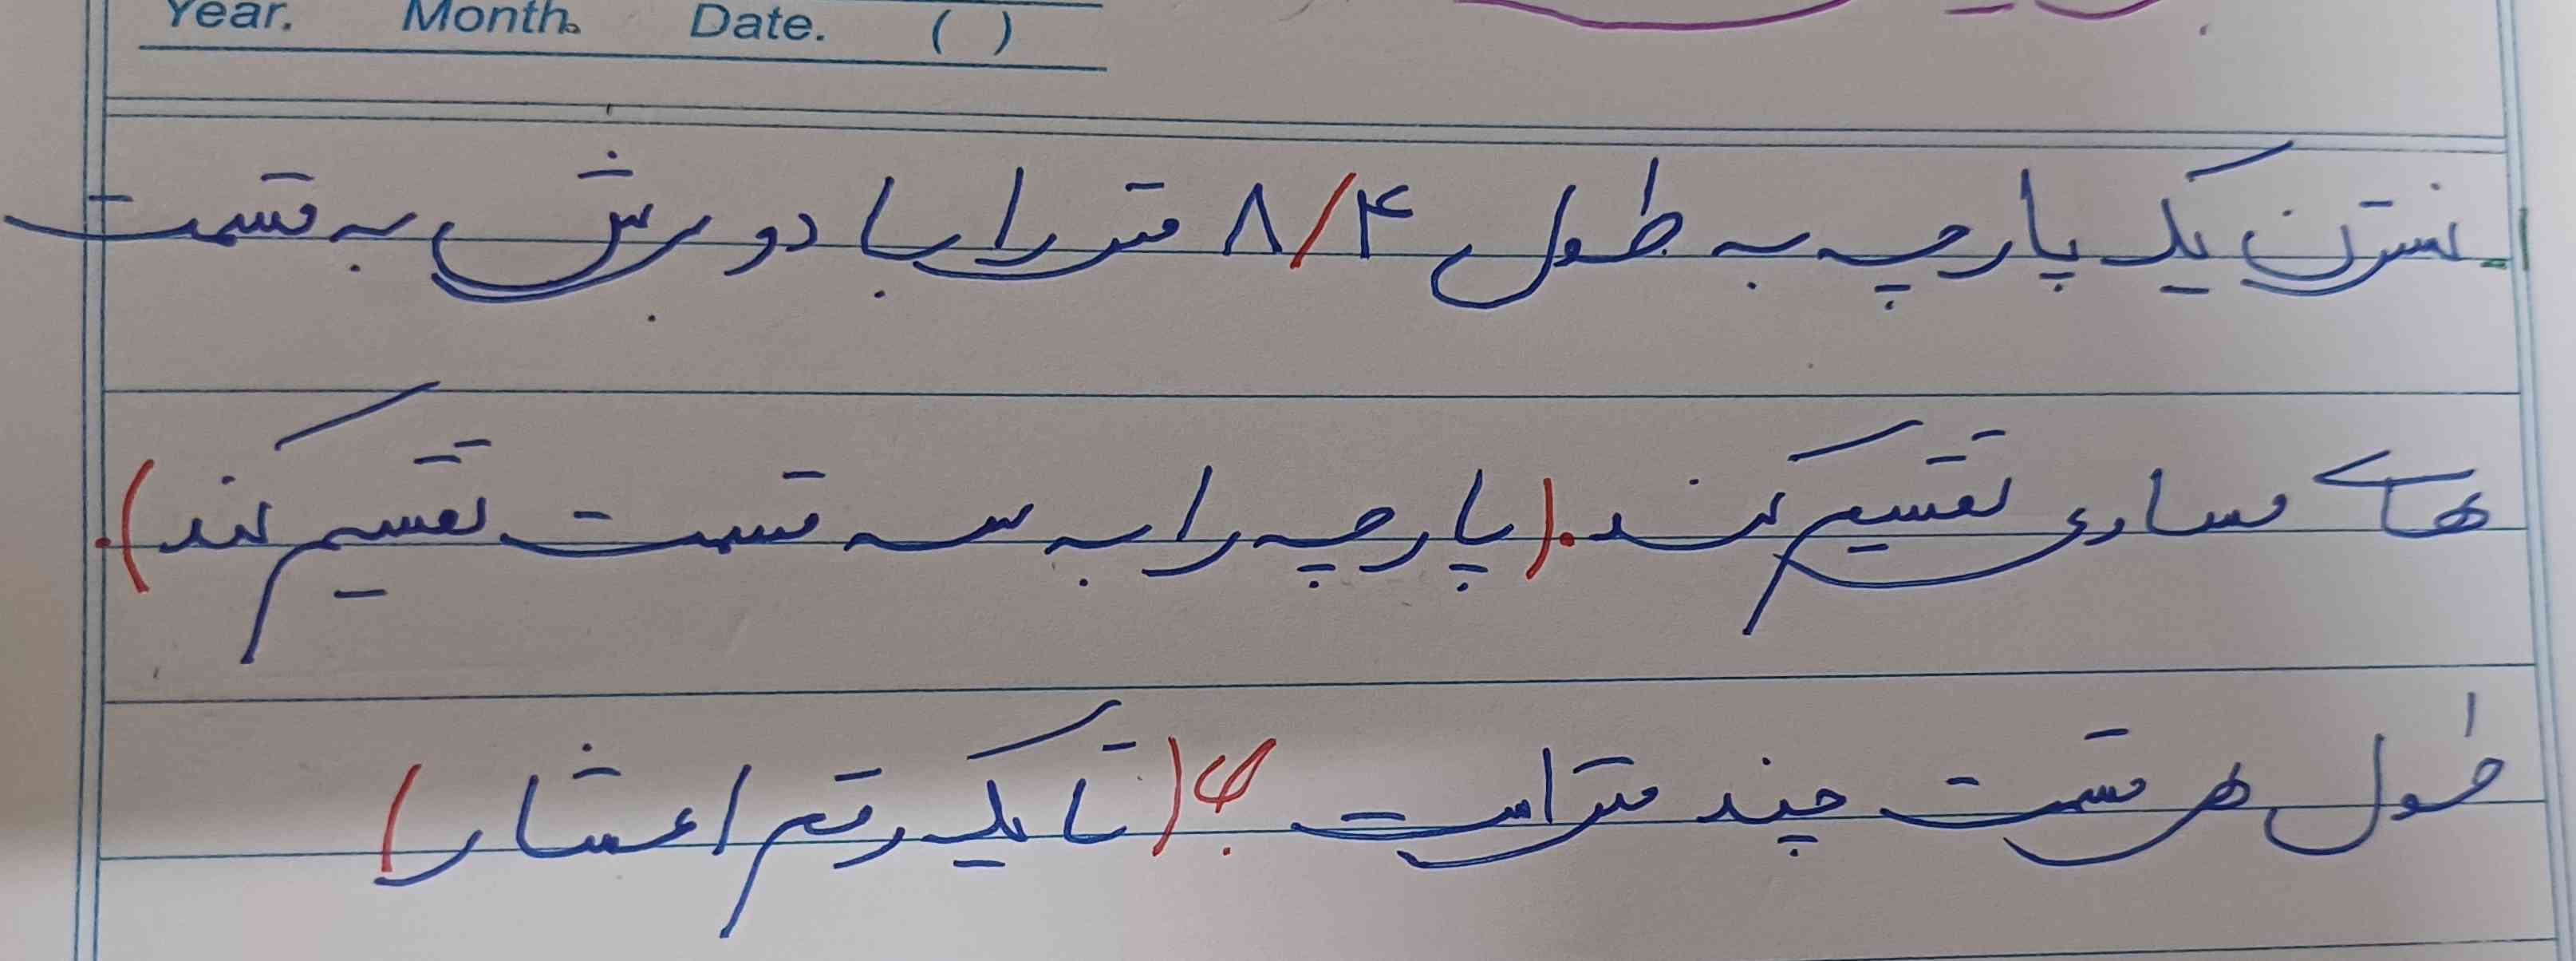 Year. Month. Date. ( )
نسترن یک پارچه به طول ۸/۴ متر را با دو برش به قسمت
های مساوی تقسیم کند. (پارچه را به سه قسمت تقسیم کند).
طول هر قسمت چند متر است ؟ (تا یک رقم اعشار)